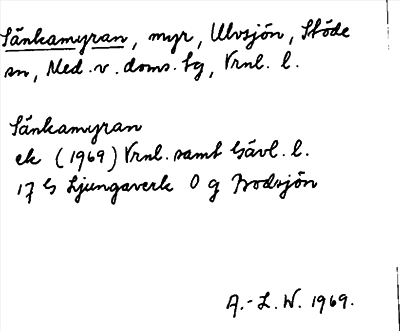 Sänkamyran, myr, Ulvsjön, Stöde
sn, Med. v. doms. tg, Vrnl. l.
Sänkamyran
ek (1969) Vrnl. samt Gävl. l.
17 G Ljungaverk 0 g Bodsjön
A.-L. W. 1969.